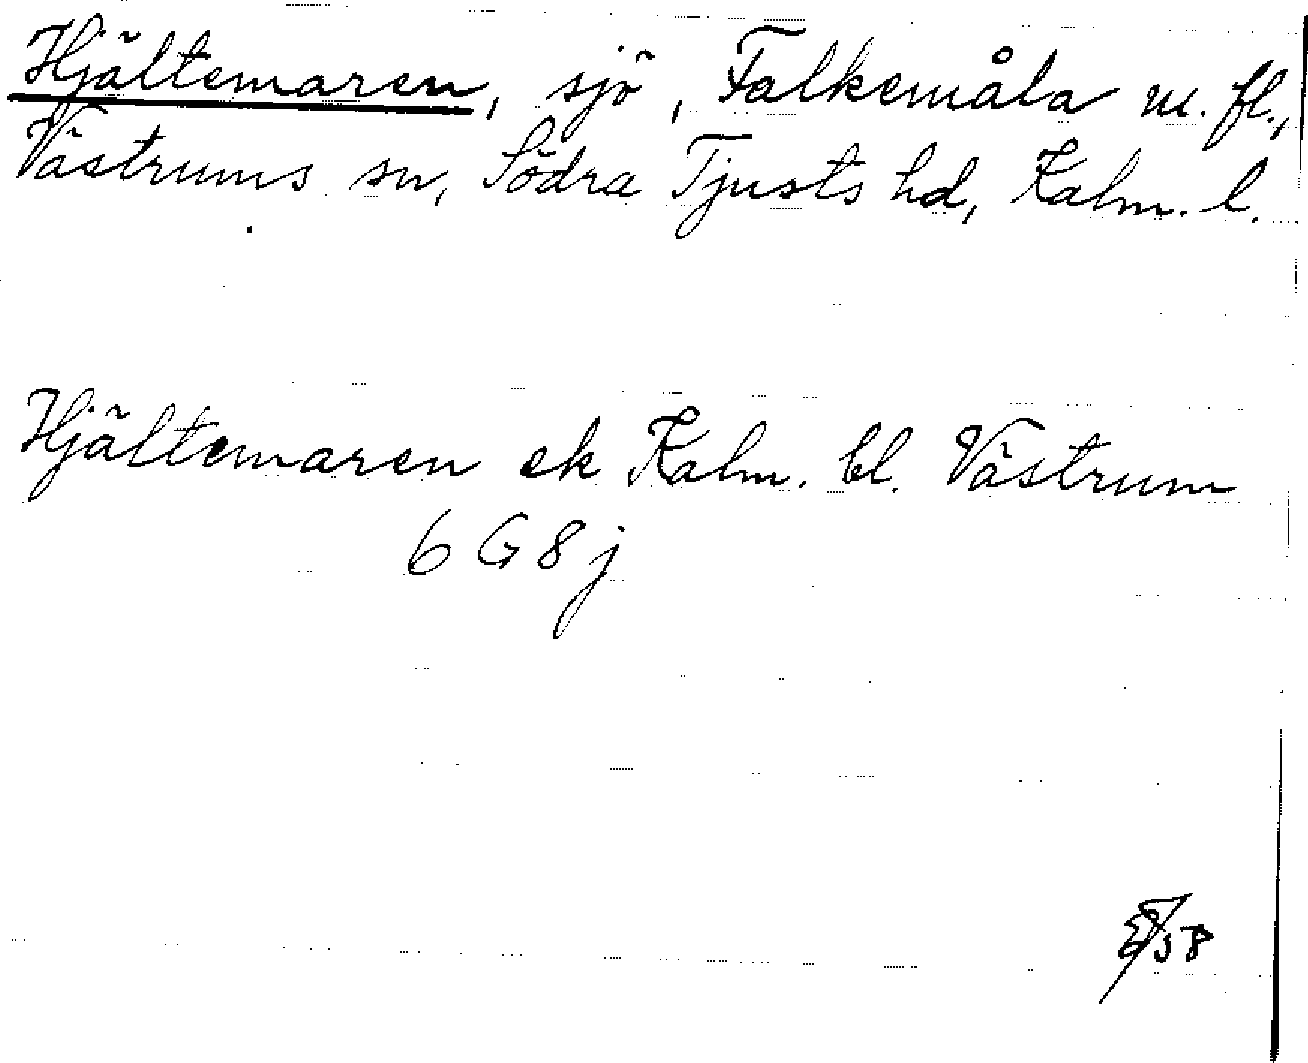 Hjältemaren, sjö, Falkemåla m. fl.,
Västrums sn, Södra Tjusts hd, Kalm. l.
Hjältemaren ek Kalm. bl. Västrum
6 G 8 j